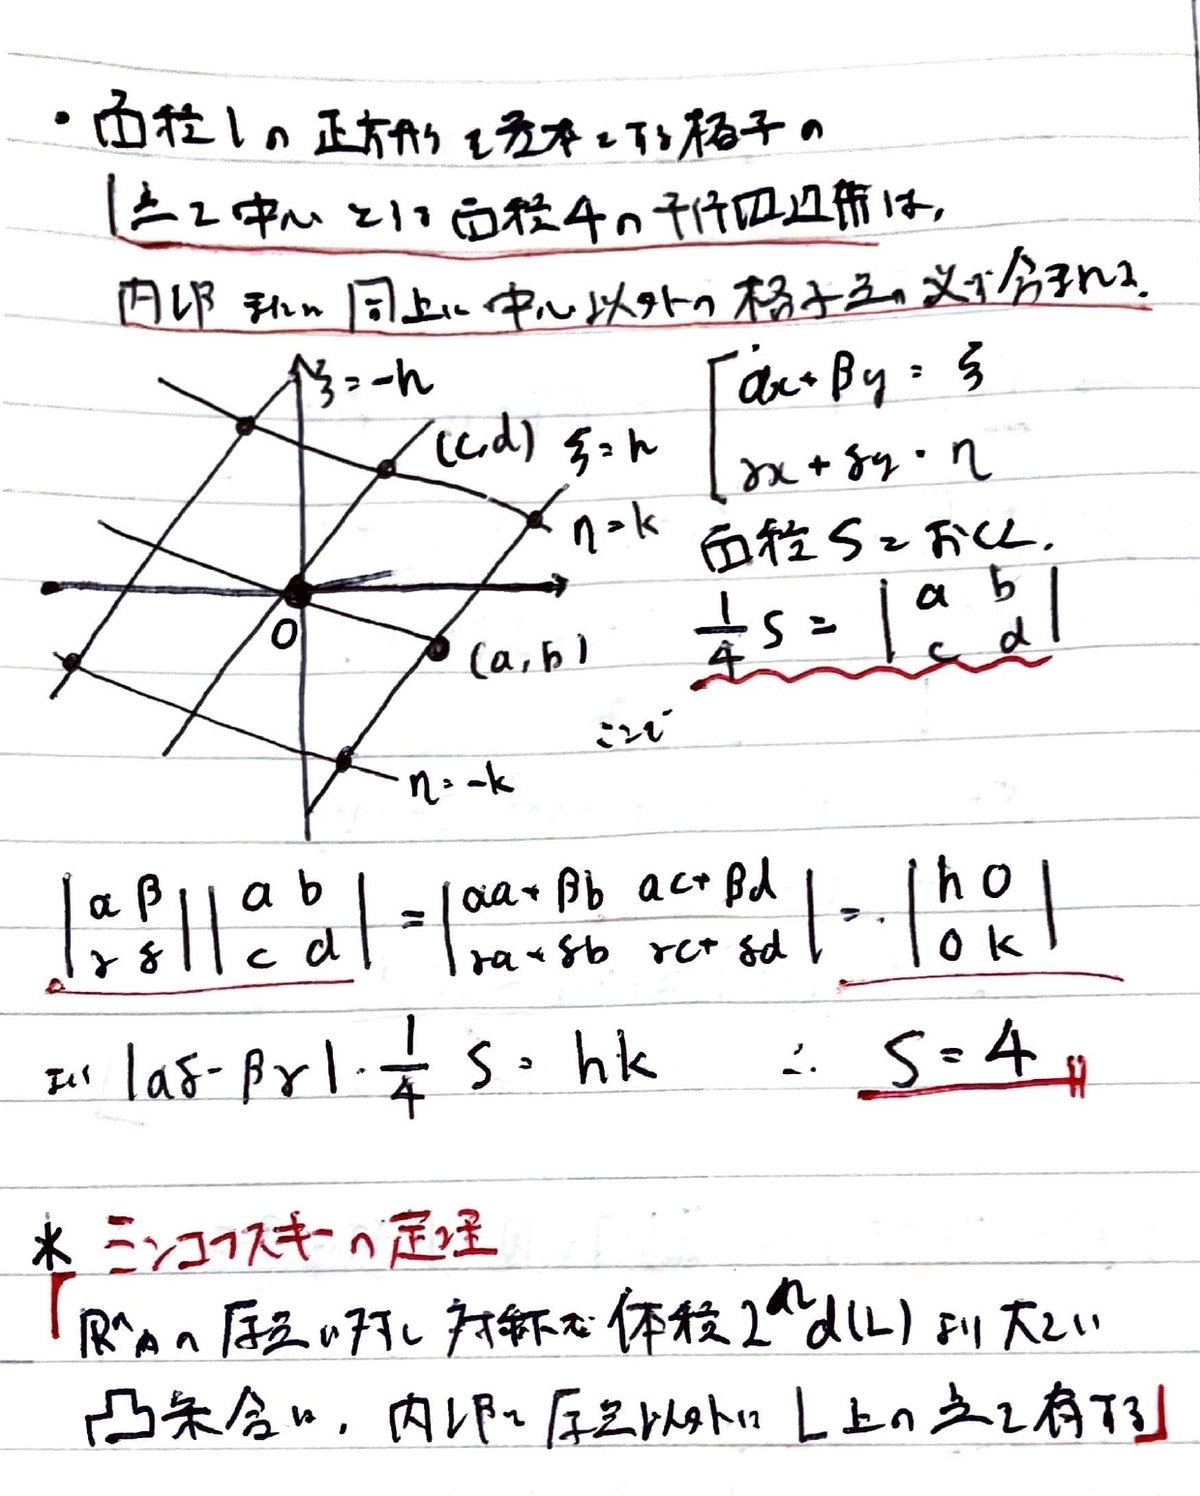 ・面積1の正方形を基本とする格子の
1点を中心として面積4の平行四辺形は、
内部または周上に中心以外の格子点が必ず含まれる.
ξ=-h
(c,d) ξ=h
η=k
O
(a,b)
η=-k
αx+βy=ξ
γx+δy=η
面積Sとおくと.
1/4 S = | a b |
| c d |
ここで
| α β | | a b | = | αa+βb αc+βd | = | h 0 |
| γ δ | | c d | | γa+δb γc+δd | | 0 k |
より |αδ-βγ|・1/4 S = hk ∴ S=4
* ミンコフスキーの定理
「R^n内の原点に対し対称な体積2^n d(L)より大きい
凸集合は、内部に原点以外にL上の点を有する」